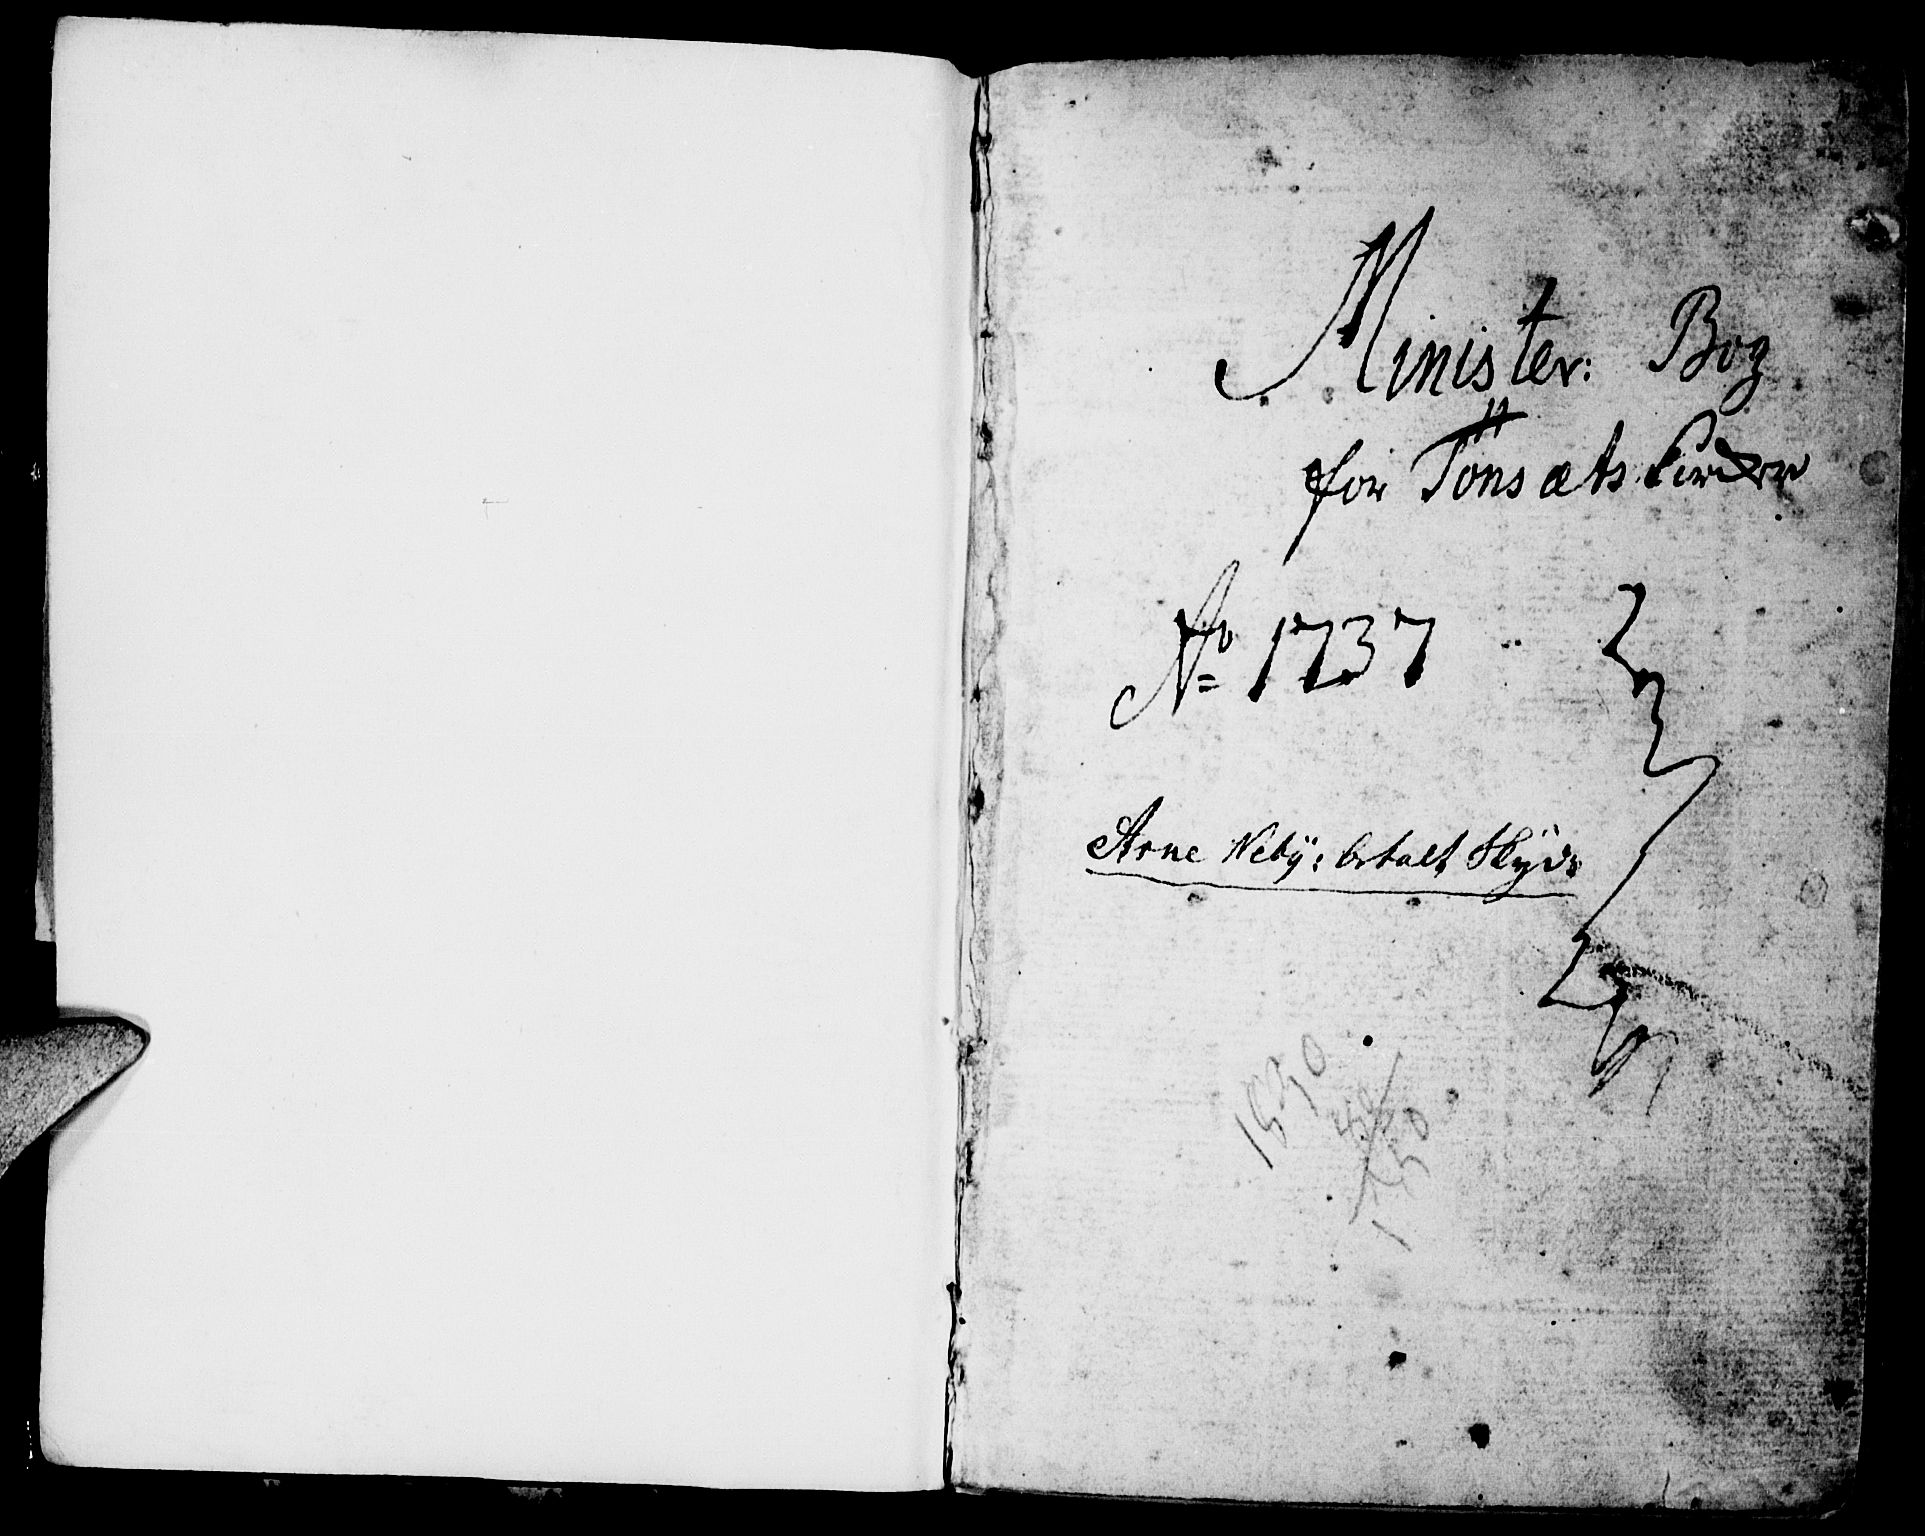 Minister: Bog
for Tönsæts Kircker
No 1737
Arne Nebÿ: betalt Skÿds
1830